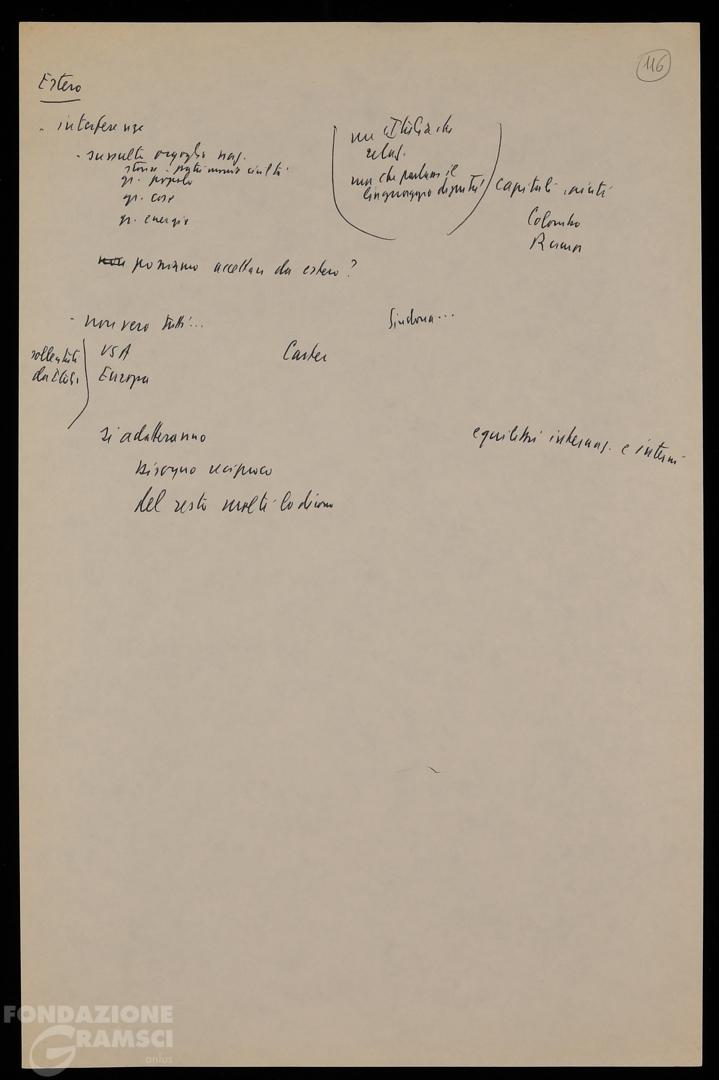 116
Estero
- interferenze
- sussulto orgoglio naz.
storia: patrimonio civiltà
gr. popolo
gr. cose
gr. energie
ma che parlano il
linguaggio
capitali aiuti
Colombo
possiamo accettare da estero?
- non vero tutti...
Sindona...
sollecitati
da Itali
USA
Europa
Carter
si adatteranno
equilibri internaz. e interni
bisogno reciproco
del resto molti lo dicono
FONDAZIONE
GRAMSCI
onlus